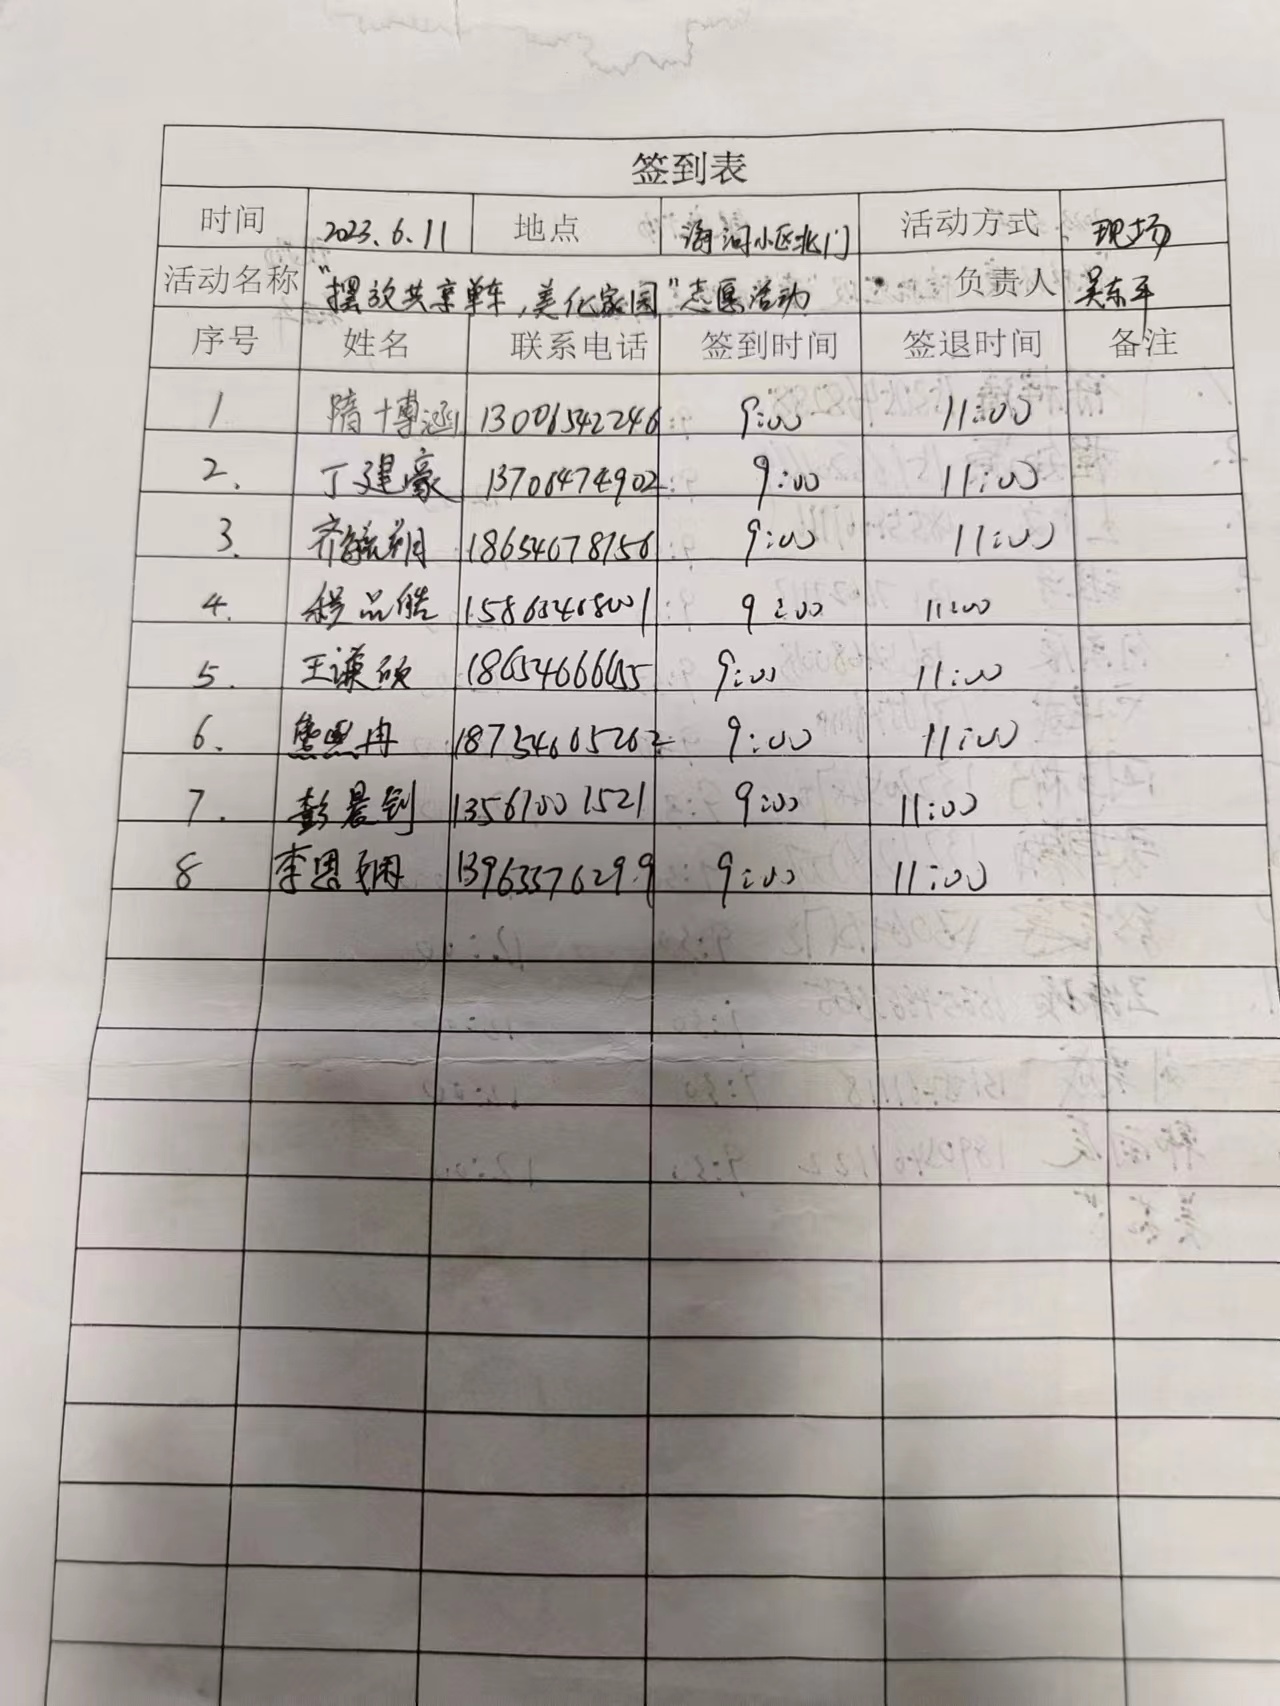 签到表
时间 2023.6.11 地点 河小区北门 活动方式 现场
活动名称 "摆放共享单车,美化家园"志愿活动 负责人 吴东平
序号 姓名 联系电话 签到时间 签退时间 备注
1 隋博涵 13006542246 9:00 11:00
2. 丁建豪 13706474902 9:00 11:00
3. 齐朔 18654678756 9:00 11:00
4. 品皓 15863468001 9:00 11:00
5. 王谦硕 18654666655 9:00 11:00
6. 冉 18754605262 9:00 11:00
7. 彭晨钊 13561001521 9:00 11:00
8 李恩娴 13963376299 9:00 11:00